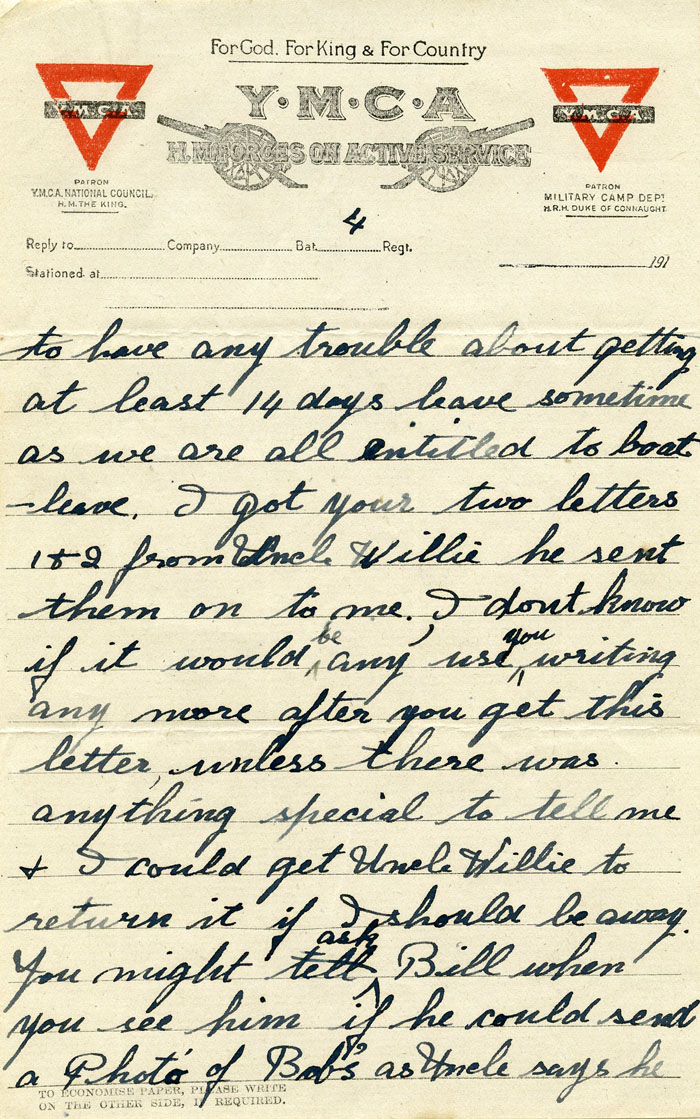 For God. For King & For Country
Y·M·C·A
H.M. FORCES ON ACTIVE SERVICE
Y.M.C.A
PATRON
Y.M.C.A. NATIONAL COUNCIL.
H.M. THE KING.
Y.M.C.A.
PATRON
MILITARY CAMP DEPT
H.R.H. DUKE OF CONNAUGHT.
4
Reply to Company Bat. Regt.
Stationed at
191
to have any trouble about getting
at least 14 days leave sometime
as we are all entitled to boat
-leave. I got your two letters
1 & 2 from Uncle Willie he sent
them on to me. I dont know
if it would be any use you writing
any more after you get this
letter, unless there was
anything special to tell me
& I could get Uncle Willie to
return it if I should be away.
You might tell ask Bill when
you see him if he could send
a Photo of Bob's as Uncle says he
TO ECONOMISE PAPER, PLEASE WRITE
ON THE OTHER SIDE, IF REQUIRED.